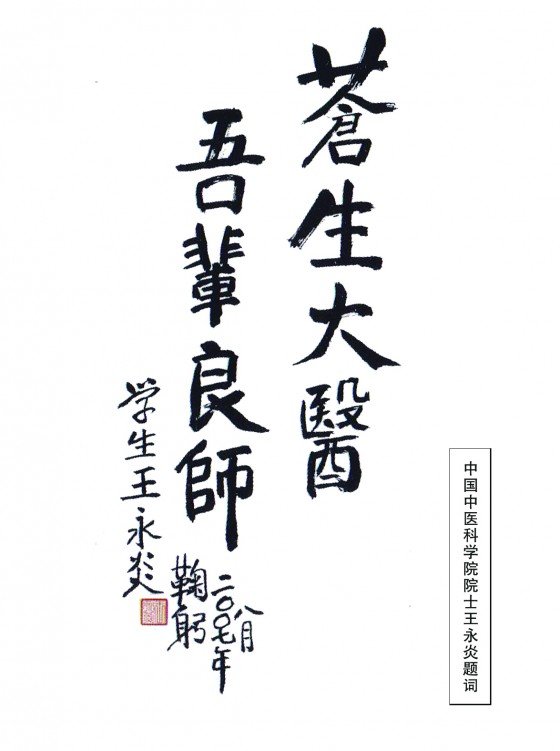 蒼生大醫
吾輩良師
学生王永炎
鞠躬
二〇〇七年
八月
中国中医科学院院士王永炎题词